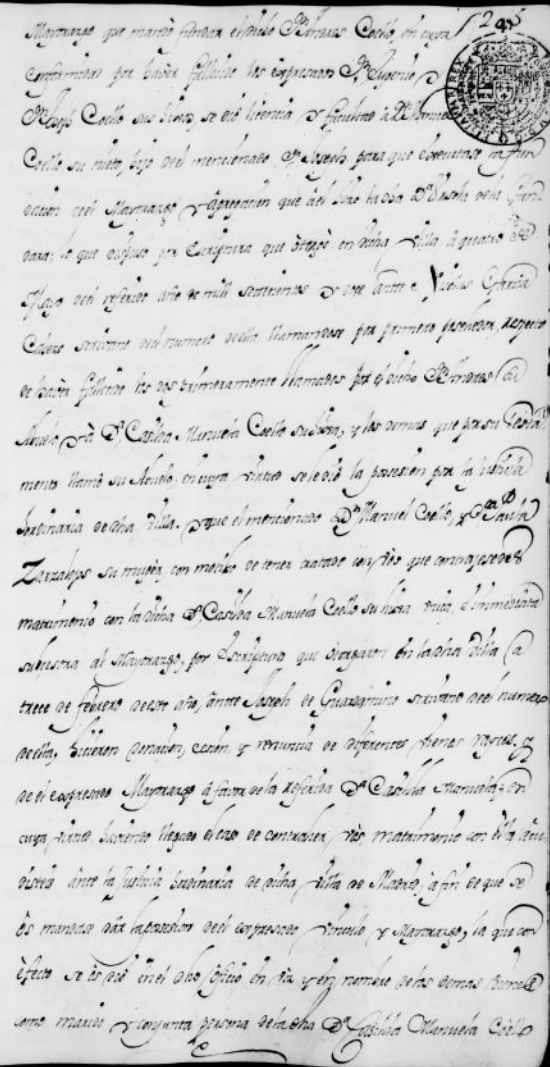 Mayorazgo que mandò fundar el dicho Dn. Andres Coello, en cuya
conformidad por haver fallecido los expresados Dn. Eugenio y
Dn. Joseph Coello sus hijos, se diò licencia y facultad à Dn. Manuel
Coello su nieto, hijo del mencionado Dn. Joseph para que executase la fun
dacion del Mayorazgo y Agregacion que à el hizo la dha Da. Ursola de la
dara; lo que dispuso por escriptura que òtorgò en dicha villa à quatro de
Mayo del referido año de mill setecientos y ante Nicolas Garcia
Calero scrivano del numero de ella llamandose por primero poseedor, respecto
de haver fallecido los dos primeramente llamados por el dicho Dn. Andres su
Abuelo y à Da. Casilda Manuela Coello su hija, y los demas que por su testa
mento llamò su Abuelo, en cuya virtud se le diò la posesion por la Justicia
hordinaria de dha villa. y que el mencionado Dn. Manuel Coello, y Da. Paula
su muger, con motibo de tener tratado con vòs que contrajesedes
matrimonio con la dicha Da. Casilda Manuela Coello su hija unica, è inmediata
subcesora al Mayorazgo, por escriptura que òtorgaron en la dha villa à
trece de febrero de este año, ante Joseph de Guardamino scrivano del numero
de ella, hicieron donacion, cesion, y renuncia de diferentes vienes
de el expresado Mayorazgo à favor de la referida Da. Casilda Manuela; en
cuya virtud, haviendo llegado el caso de contraher vòs, matrimonio con ella acu
disteis ante la Justicia hordinaria de dicha villa de Madrid, à fin de que se
òs mandase dàr la posesion del expresado vinculo y Mayorazgo, la que con
èfecto se òs diò en el dho oficio en voz y en nombre de los demas vienes
como marido y conjunta persona de la dha Da. Casilda Manuela Coello